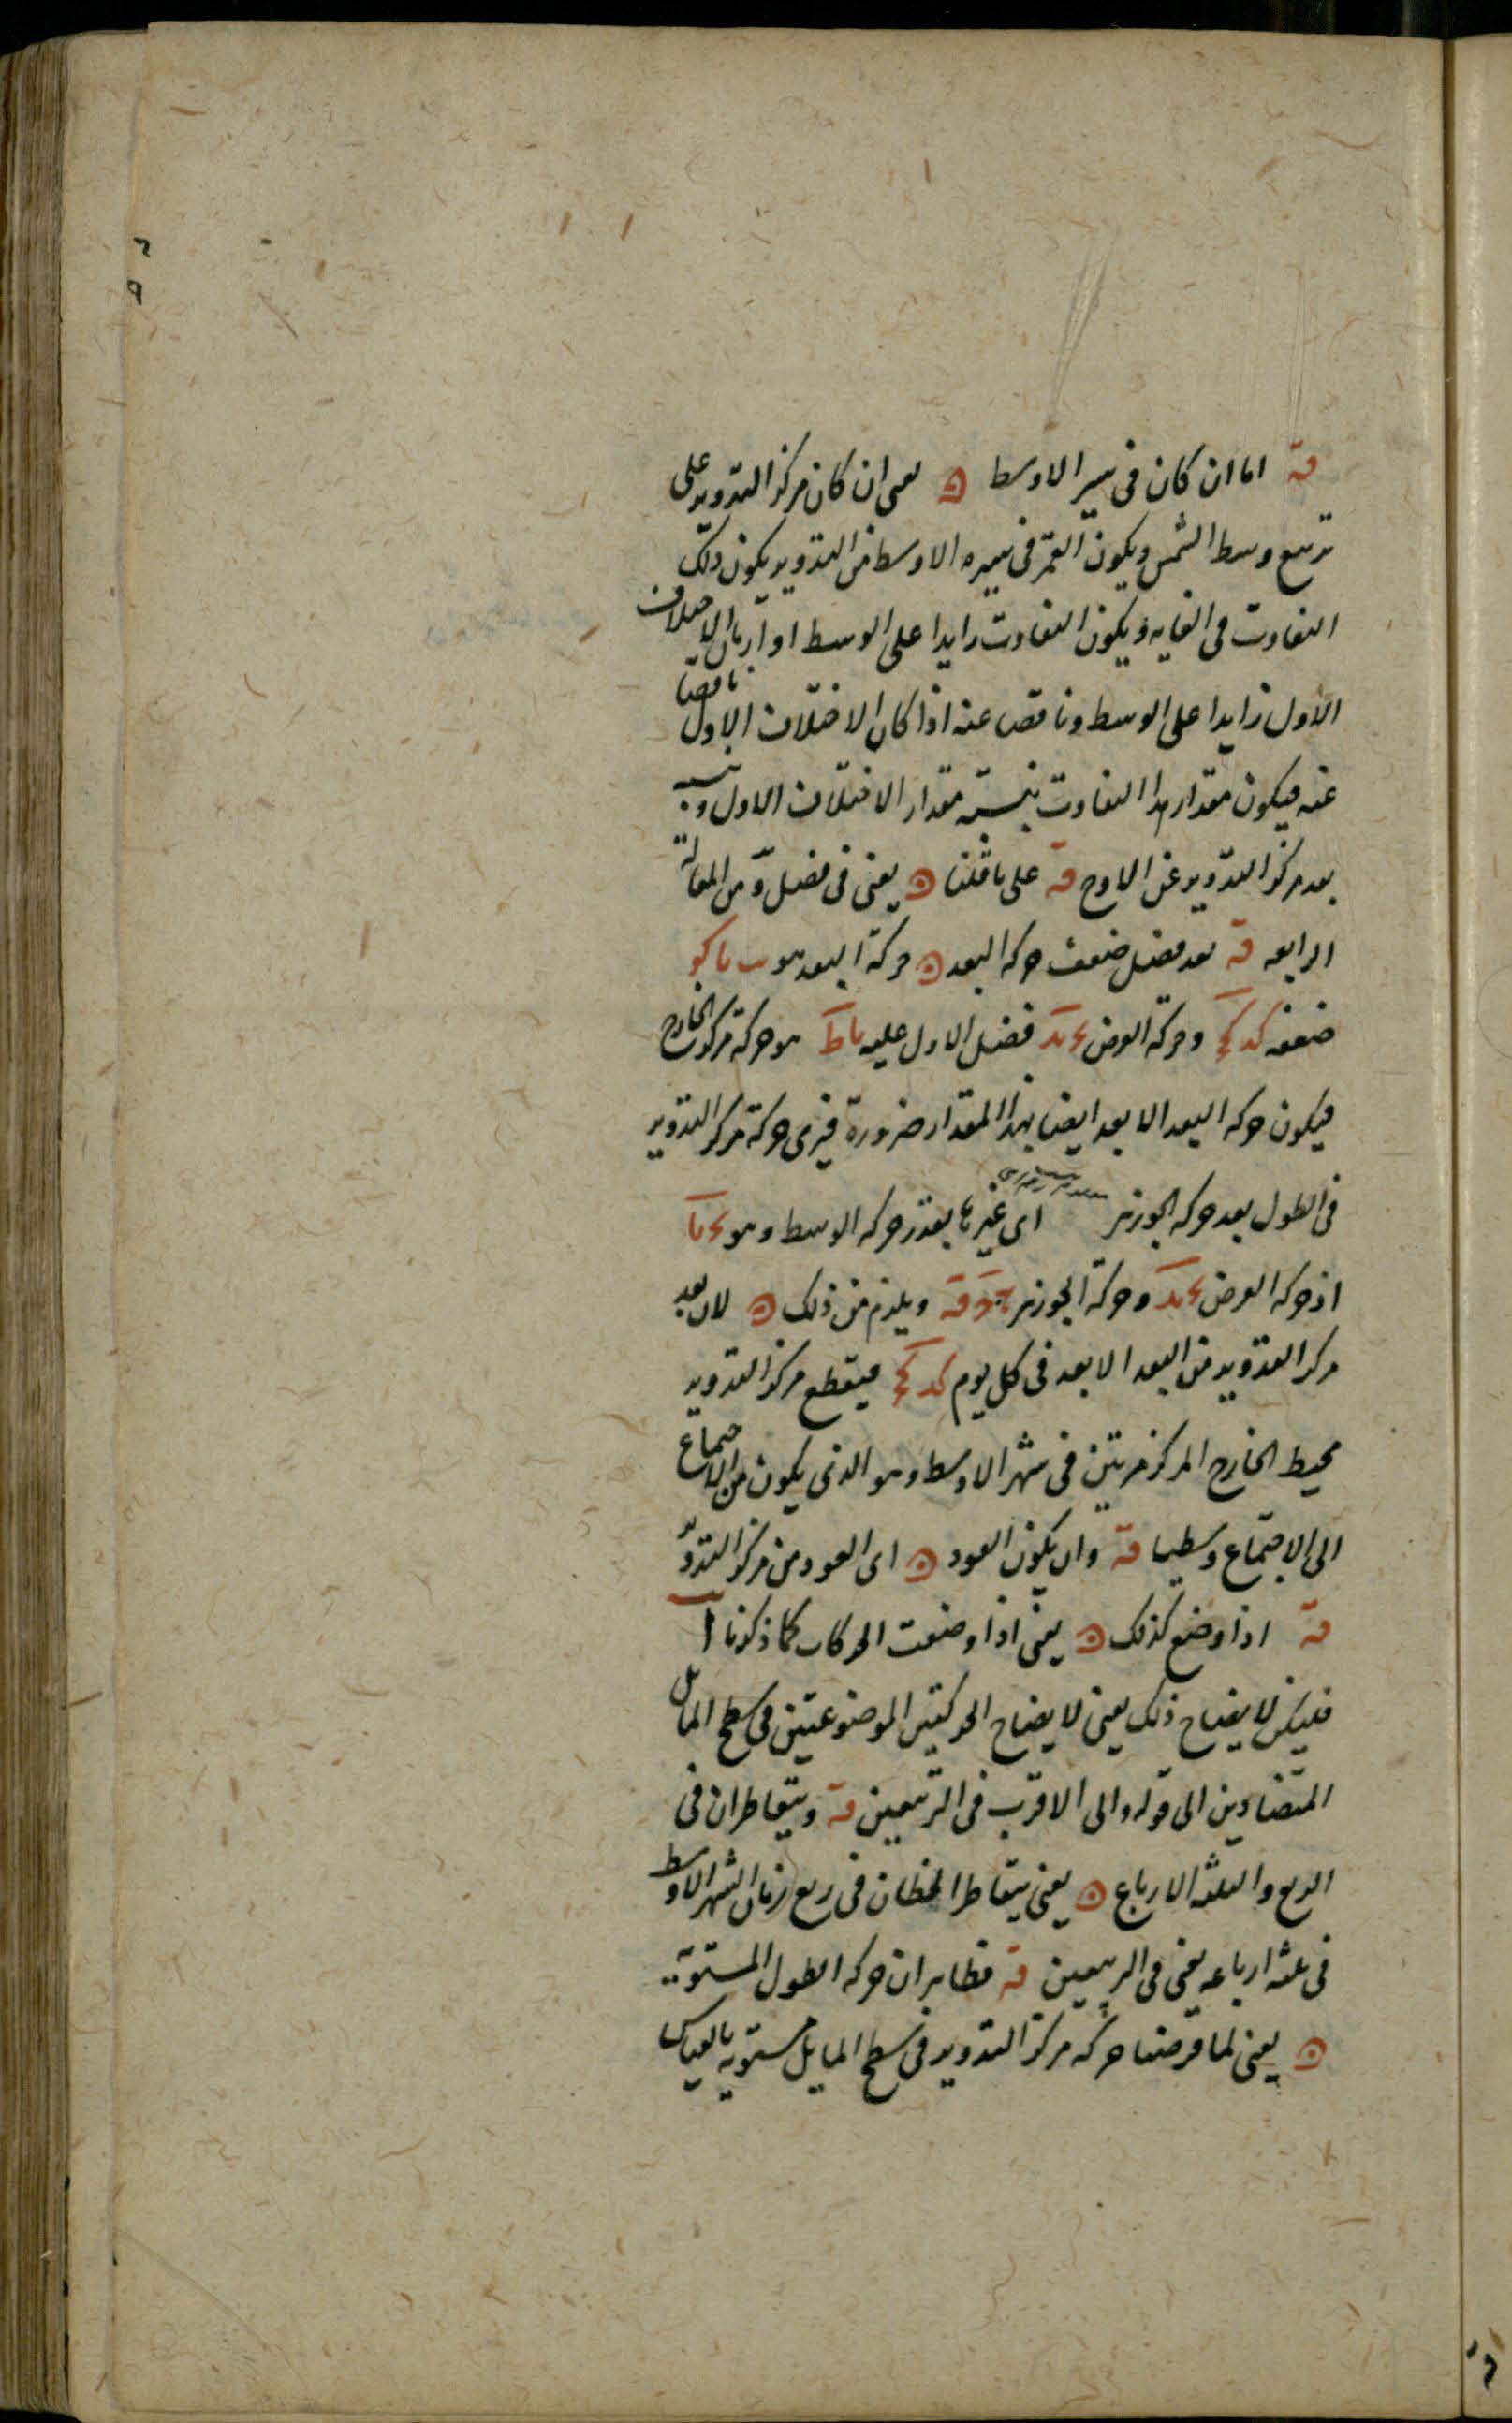 قه اما ان كان فى سير الاوسط ۞ يعنى ان كان مركز التدوير على
تربيع وسط الشمس ويكون القمر فى سيره الاوسط من التدوير يكون ذلك
التفاوت فى الغايه ويكون التفاوت زايدا على الوسط اذا كان الاختلاف
الاول زايدا على الوسط وناقصا عنه اذا كان الاختلاف الاول ناقصا
عنه فيكون مقدار هذا التفاوت بنسبة مقدار الاختلاف الاول وبنسبه
بعد مركز التدوير عن الاوج قه على ما قلنا ۞ يعنى فى فصل و من المقالة
الرابعه قه بعد فضل ضعف حركه البعد ۞ حركة البعد هو يب يا كو
ضعفه كد كج وحركة العرض يج يد فضل الاول عليه يا ط هو حركة مركز الخارج
فيكون حركه البعد الابعد ايضا بهذا المقدار ضرورة فيرى حركة مركز التدوير
فى الطول بعد حركه الجوزهر اى غيرها بقدر حركه الوسط وهو يج يا
اذ حركه العرض يج يد وحركة الجوزهر ج قه ويلزم من ذلك ۞ لان بعد
مركز التدوير من البعد الابعد فى كل يوم كد كج فيقطع مركز التدوير
محيط الخارج المركز مرتين فى شهر الاوسط وهو الذى يكون من الاجتماع
الى الاجتماع وسطيا قه وان يكون العود ۞ اى العود من مركز التدوير
قه اذا وضع كذلك ۞ يعنى اذا وضعت الحركات كما ذكرنا
فليكن لايضاح ذلك يعنى لايضاح الحركتين الموضوعتين فى سطح المايل
المتضادين الى قوله والى الاقرب فى التربيعين قه ويتقاطران فى
الربع والثلثه الارباع ۞ يعنى يتقاطر الخطان فى ربع زمان الشهر الاوسط
فى ثلثه ارباعه يعنى فى التربيعين قه فظاهر ان حركه الطول المستوية
۞ يعنى لما فرضنا حركه مركز التدوير فى سطح المايل مستويه بالقياس